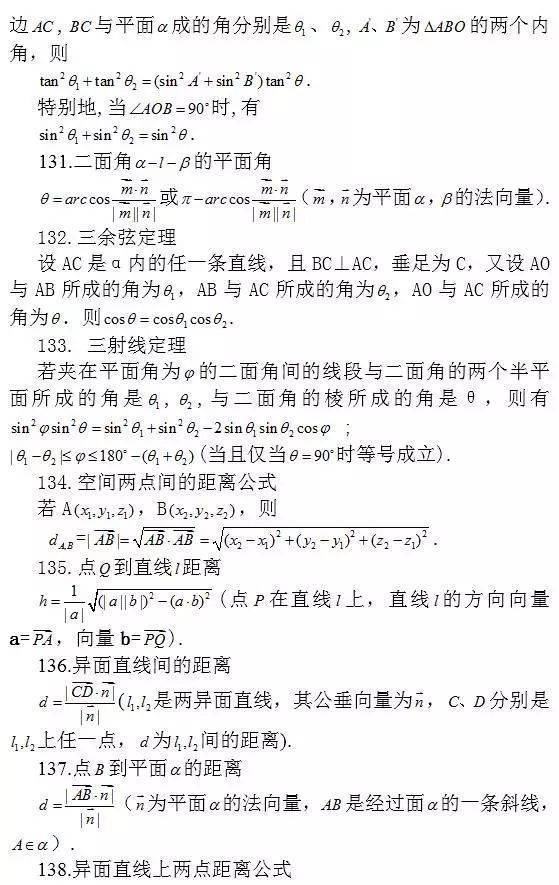 边 AC, BC 与平面 α 成的角分别是 θ₁、θ₂, A'、B' 为 ΔABO 的两个内
角，则
tan² θ₁ + tan² θ₂ = (sin² A' + sin² B') tan² θ.
特别地,当∠AOB = 90°时,有
sin² θ₁ + sin² θ₂ = sin² θ.
131.二面角 α-l-β 的平面角
θ = arc cos (m⃗·n⃗)/(|m⃗||n⃗|) 或 π - arc cos (m⃗·n⃗)/(|m⃗||n⃗|)（m⃗，n⃗为平面α，β的法向量）.
132.三余弦定理
设 AC 是 α 内的任一条直线，且 BC⊥AC，垂足为 C，又设 AO
与 AB 所成的角为θ₁，AB 与 AC 所成的角为θ₂，AO 与 AC 所成的
角为θ．则cosθ = cosθ₁cosθ₂.
133. 三射线定理
若夹在平面角为φ的二面角间的线段与二面角的两个半平
面所成的角是θ₁, θ₂, 与二面角的棱所成的角是 θ，则有
sin² φ sin² θ = sin² θ₁ + sin² θ₂ - 2 sin θ₁ sin θ₂ cos φ ;
|θ₁ - θ₂| ≤ φ ≤ 180° - (θ₁ + θ₂)(当且仅当θ = 90°时等号成立).
134.空间两点间的距离公式
若 A(x₁, y₁, z₁)，B(x₂, y₂, z₂)，则
d_{A,B} = |AB⃗| = √(AB⃗·AB⃗) = √((x₂ - x₁)² + (y₂ - y₁)² + (z₂ - z₁)²).
135.点Q到直线l距离
h = (1/|a|)√((|a||b|)² - (a·b)²)（点 P 在直线 l 上，直线 l 的方向向量
a=PA⃗，向量 b=PQ⃗）.
136.异面直线间的距离
d = |CD⃗·n⃗|/|n⃗| (l₁, l₂是两异面直线，其公垂向量为n⃗，C、D 分别是
l₁, l₂上任一点，d为l₁, l₂间的距离).
137.点B到平面α的距离
d = |AB⃗·n⃗|/|n⃗|（n⃗为平面α的法向量，AB是经过面α的一条斜线，
A∈α）.
138.异面直线上两点距离公式